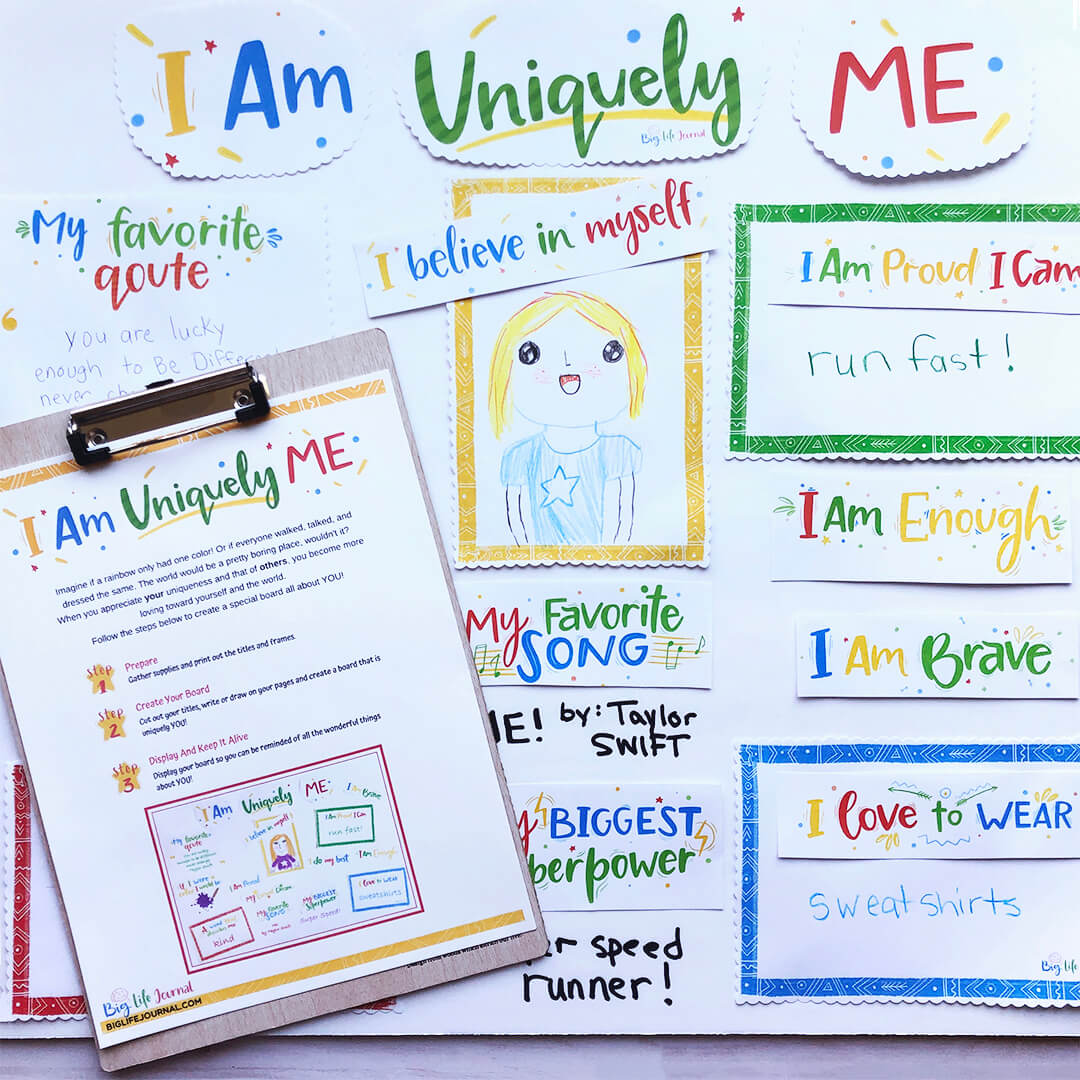 I Am Uniquely ME
Big Life Journal
My favorite
qoute
you are lucky
enough to Be
never
I believe in myself
I Am Proud I Can
run fast!
I Am Enough
I Am Brave
My Favorite
SONG
ME! by: Taylor
SWIFT
BIGGEST
runner!
speed
I love to WEAR
sweatshirts
Big Life
I Am Uniquely ME
Imagine if a rainbow only had one color! Or if everyone walked, talked, and
dressed the same. The world would be a pretty boring place, wouldn't it?
When you appreciate your uniqueness and that of others, you become more
loving toward yourself and the world.
Follow the steps below to create a special board all about YOU!
Step 1
Prepare
Gather supplies and print out the titles and frames.
Step 2
Create Your Board
Cut out your titles, write or draw on your pages and create a board that is
uniquely YOU!
Step 3
Display And Keep It Alive
Display your board so you can be reminded of all the wonderful things
about YOU!
I Am Uniquely ME I Am Brave
My favorite
qoute
I believe in myself
I Am Proud I Can
run fast!
I do my best
I Am Enough
If I were a
color I would be
I Am Proud
My Favorite
SONG
My BIGGEST
Superpower
super speed!
I love to WEAR
sweatshirts
A word that
describes me
kind
Big Life Journal
BIGLIFEJOURNAL.COM